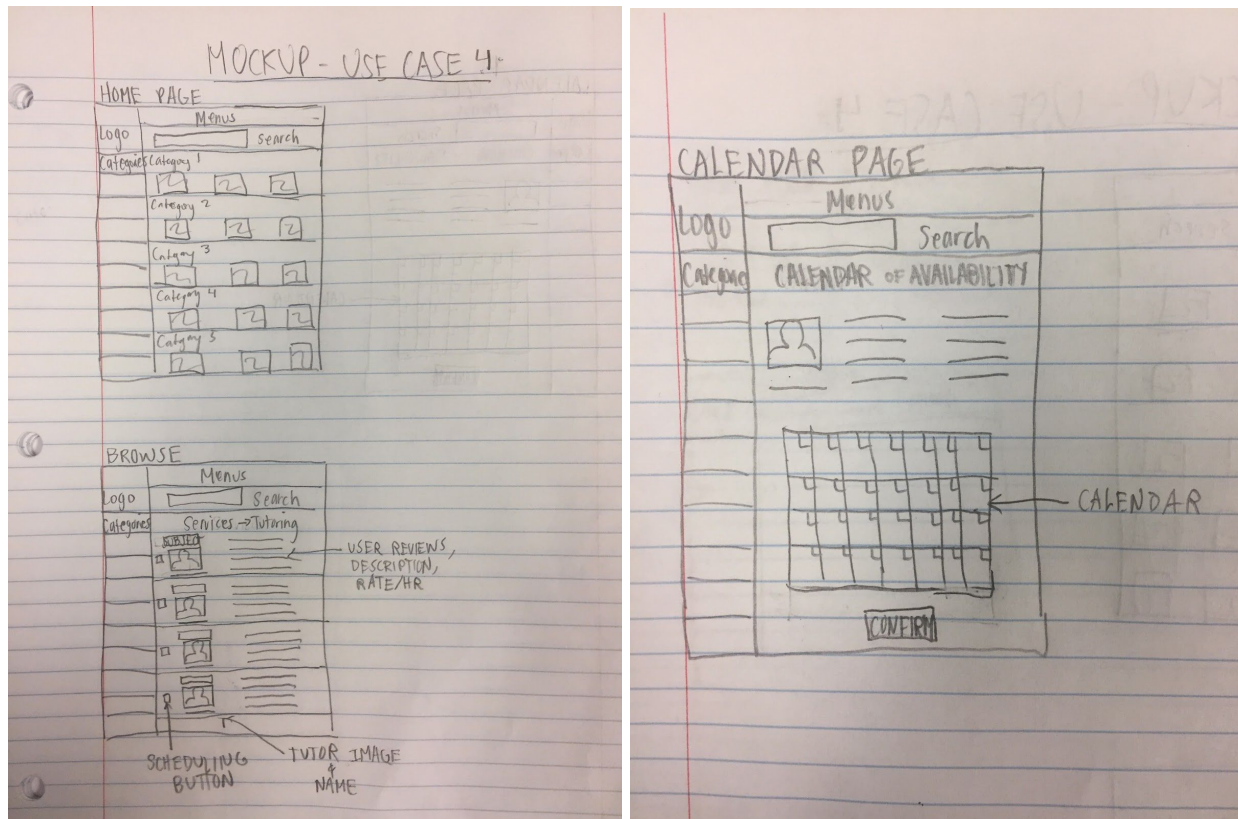 MOCKUP - USE CASE 4
HOME PAGE
Menus
Logo
Search
Categories
Category 1
Category 2
Category 3
Category 4
Category 5
BROWSE
Menus
Logo
Search
Categories
Services → Tutoring
SUBJECT
USER REVIEWS,
DESCRIPTION,
RATE/HR
SCHEDULING
BUTTON
TUTOR IMAGE
&
NAME
CALENDAR PAGE
Menus
Logo
Search
Categories
CALENDAR OF AVAILABILITY
CALENDAR
CONFIRM